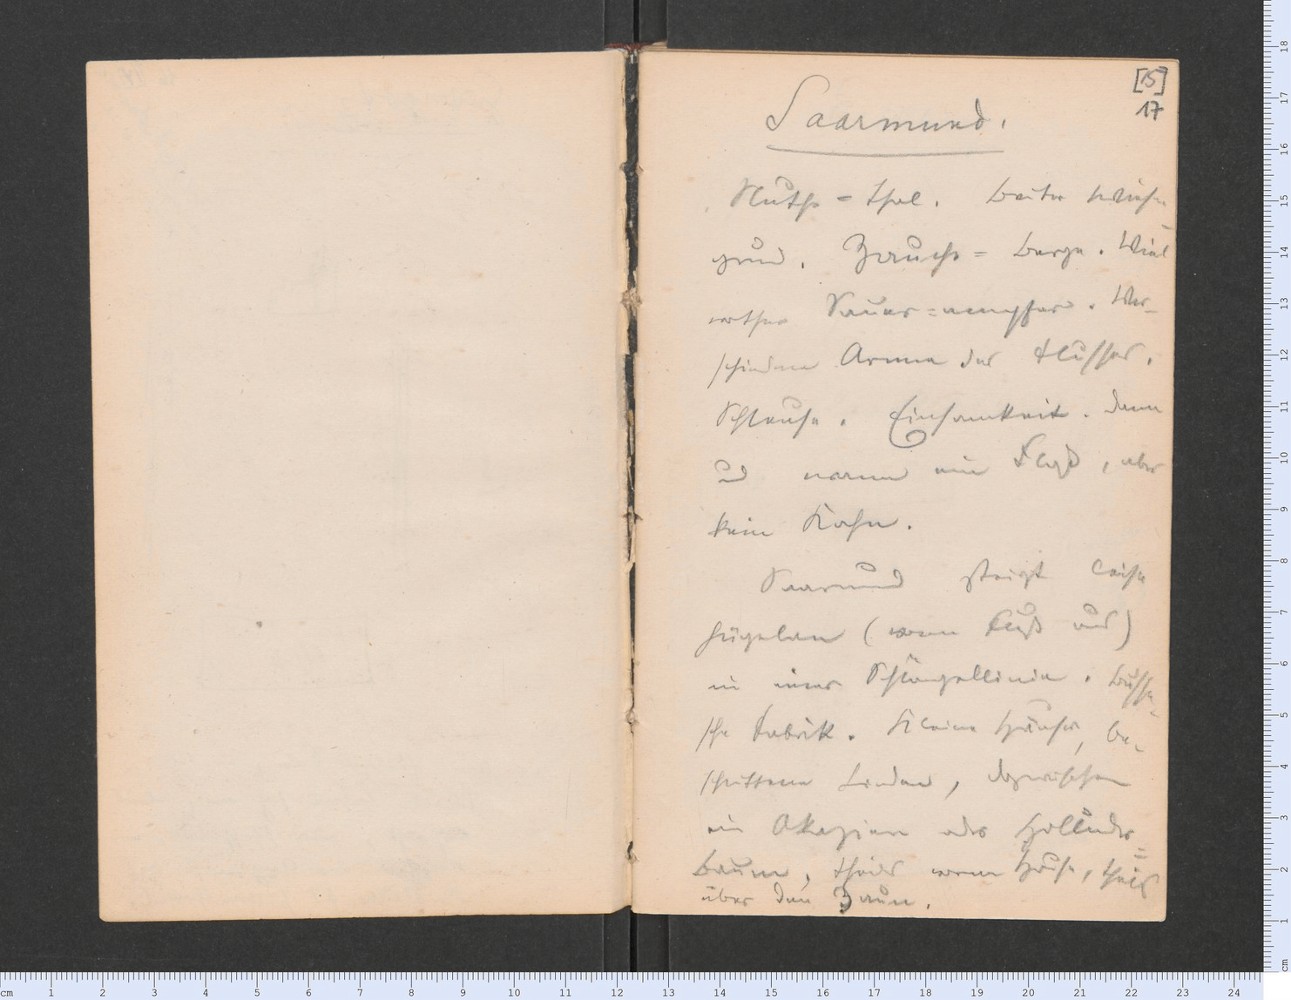 [15]
17
Saarmund.
Nuthe-Thal. Breiter Wiesen-
grund. Zauche-Berge. Viel
rother Sauer-ampfer. Ver-
schiedene Arme des Flusses.
Schleuse. Einsamkeit. Dann
und wann ein Floß, aber
kein Kahn.
Saarmund steigt leise
hügelan (vom Fluß aus)
in einer Schlängellinie.
sche Fabrik. Kleine Häuser, be-
schnittene Linden, dazwischen
ein Akazien oder Hollunder-
baum, theils vorm Hause, theils
über den Zaun.